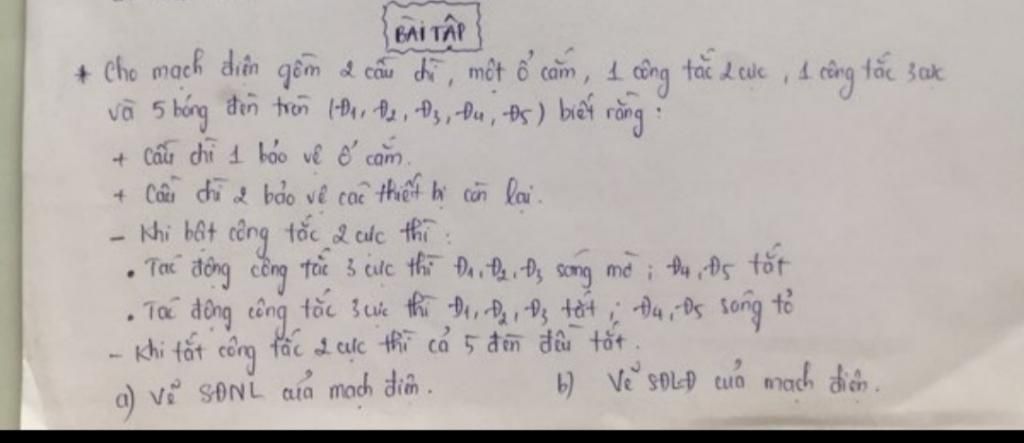 BÀI TẬP
* Cho mạch điện gồm 2 cầu chì, một ổ cắm, 1 công tắc 2 cực, 1 công tắc 3 cực
và 5 bóng đèn tròn (Đ1, Đ2, Đ3, Đ4, Đ5) biết rằng:
+ Cầu chì 1 bảo vệ ổ cắm.
+ Cầu chì 2 bảo vệ các thiết bị còn lại.
- Khi bật công tắc 2 cực thì:
• Tác động công tắc 3 cực thì Đ1, Đ2, Đ3 sáng mờ; Đ4, Đ5 tắt
• Tác động công tắc 3 cực thì Đ1, Đ2, Đ3 tắt; Đ4, Đ5 sáng tỏ
- Khi tắt công tắc 2 cực thì cả 5 đèn đều tắt.
a) Vẽ SĐNL của mạch điện. b) Vẽ SĐLĐ của mạch điện.